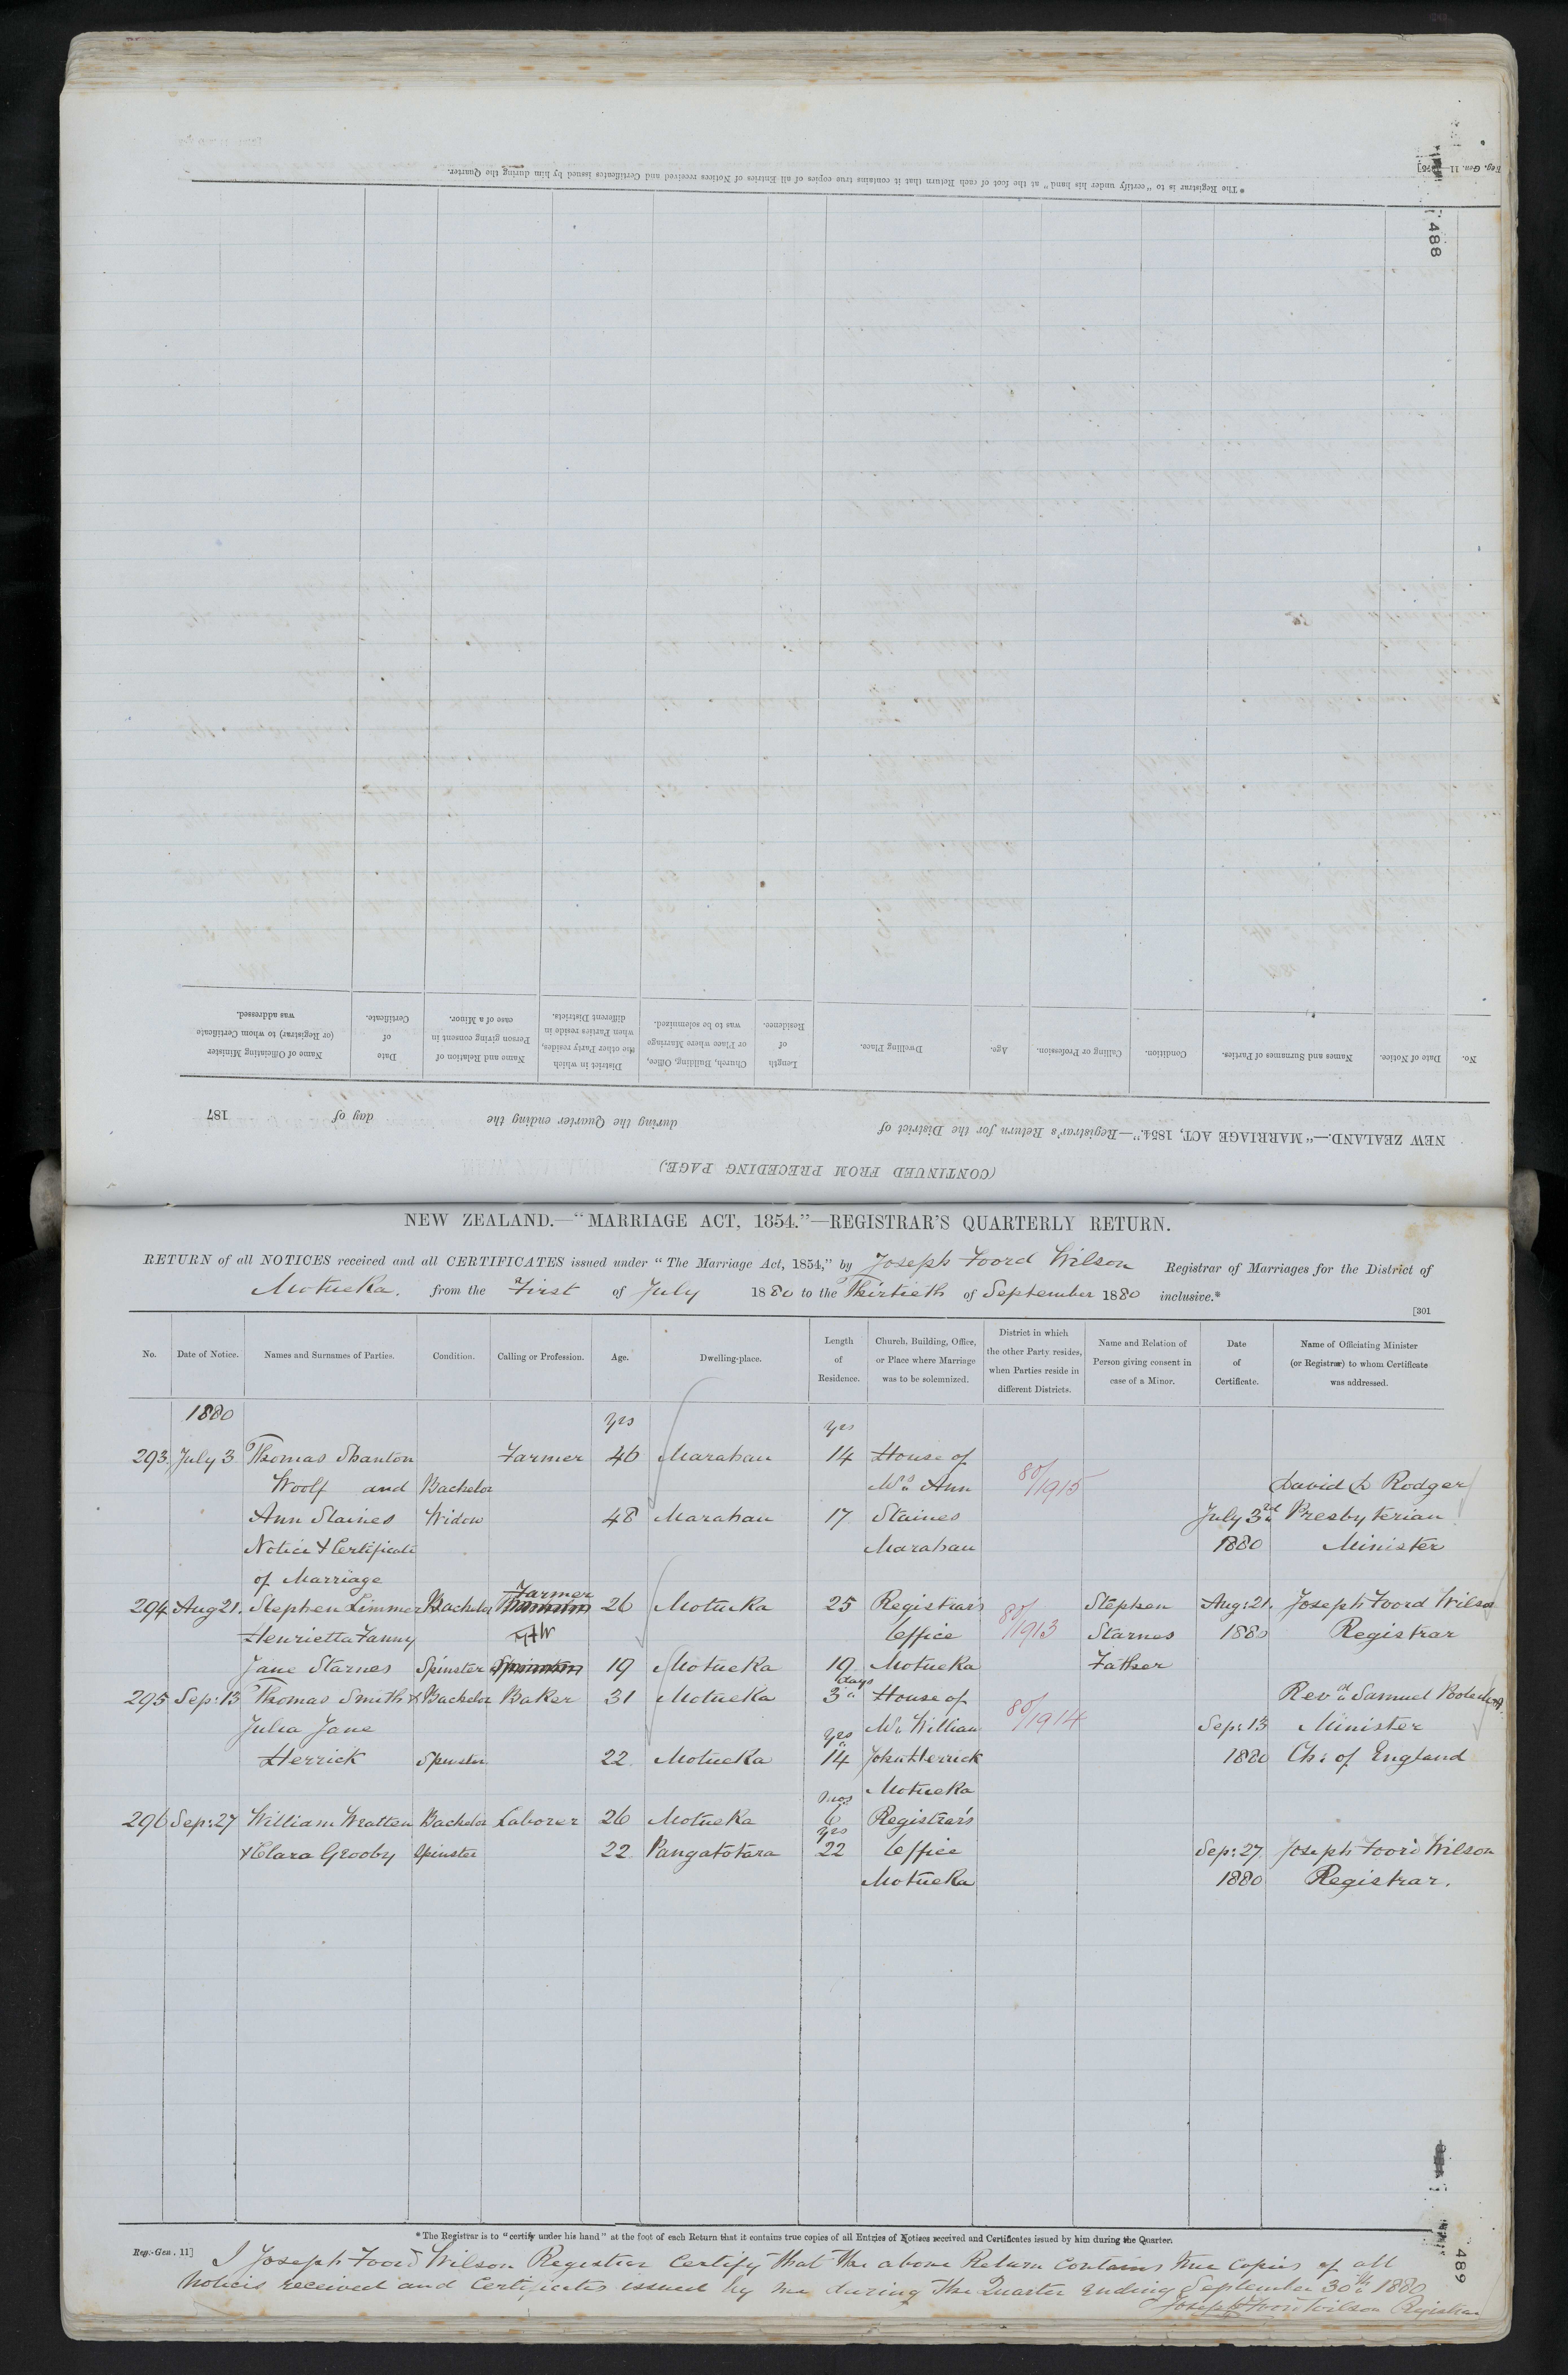 Reg. Gen. 11
488
* The Registrar is to "certify under his hand" at the foot of each Return that it contains true copies of all Entries of Notices received and Certificates issued by him during the Quarter.
No. Date of Notice. Names and Surnames of Parties. Condition. Calling or Profession. Age. Dwelling Place. Length of Residence. Church, Building, Office, or Place where Marriage was to be solemnized. District in which the other Party resides, when Parties reside in different Districts. Name and Relation of Person giving consent in case of a Minor. Date of Certificate. Name of Officiating Minister (or Registrar) to whom Certificate was addressed.
NEW ZEALAND.—"MARRIAGE ACT, 1854."—Registrar's Return for the District of during the Quarter ending the day of 187
(CONTINUED FROM PRECEDING PAGE.)
NEW ZEALAND.—"MARRIAGE ACT, 1854."—REGISTRAR'S QUARTERLY RETURN.
RETURN of all NOTICES received and all CERTIFICATES issued under "The Marriage Act, 1854," by Joseph Foord Wilson Registrar of Marriages for the District of
Motueka. from the First of July 1880 to the Thirtieth of September 1880 inclusive.*
[301
No. Date of Notice. Names and Surnames of Parties. Condition. Calling or Profession. Age. Dwelling-place. Length of Residence. Church, Building, Office, or Place where Marriage was to be solemnized. District in which the other Party resides, when Parties reside in different Districts. Name and Relation of Person giving consent in case of a Minor. Date of Certificate. Name of Officiating Minister (or Registrar) to whom Certificate was addressed.
1880 yrs yrs
293 July 3 Thomas Shanton Farmer 46 Marahau 14 House of
Woolf and Bachelor Mrs Ann 80/1915 David Rodger
Ann Staines Widow 48 Marahau 17 Staines July 3rd Presbyterian
Notice & Certificate Marahau 1880 Minister
of Marriage
Farmer
294 Aug 21. Stephen Limmer Bachelor 26 Motueka 25 Registrar's Stephen Aug: 21. Joseph Foord Wilson
Henrietta Fanny JFW Office 80/1913 Starnes 1880 Registrar
Jane Starnes Spinster 19 Motueka 19 Motueka Father
days
295 Sep: 13 Thomas Smith & Bachelor Baker 31 Motueka 3 House of Revd Samuel Poole
Julia Jane Mr William 80/1914 Sep: 13 Minister
yrs
Herrick Spinster 22 Motueka 14 John Herrick 1880 Ch: of England
Motueka
mos
296 Sep: 27 William Wratten Bachelor Laborer 26 Motueka 6 Registrar's
yrs
& Clara Grooby Spinster 22 Pangatotara 22 Office Sep: 27 Joseph Foord Wilson
Motueka 1880 Registrar.
* The Registrar is to "certify under his hand" at the foot of each Return that it contains true copies of all Entries of Notices received and Certificates issued by him during the Quarter.
Reg.-Gen. 11]
I Joseph Foord Wilson Registrar Certify that the above Return contains true copies of all
Notices received and Certificates issued by me during the Quarter ending September 30th 1880
Joseph Foord Wilson Registrar
489